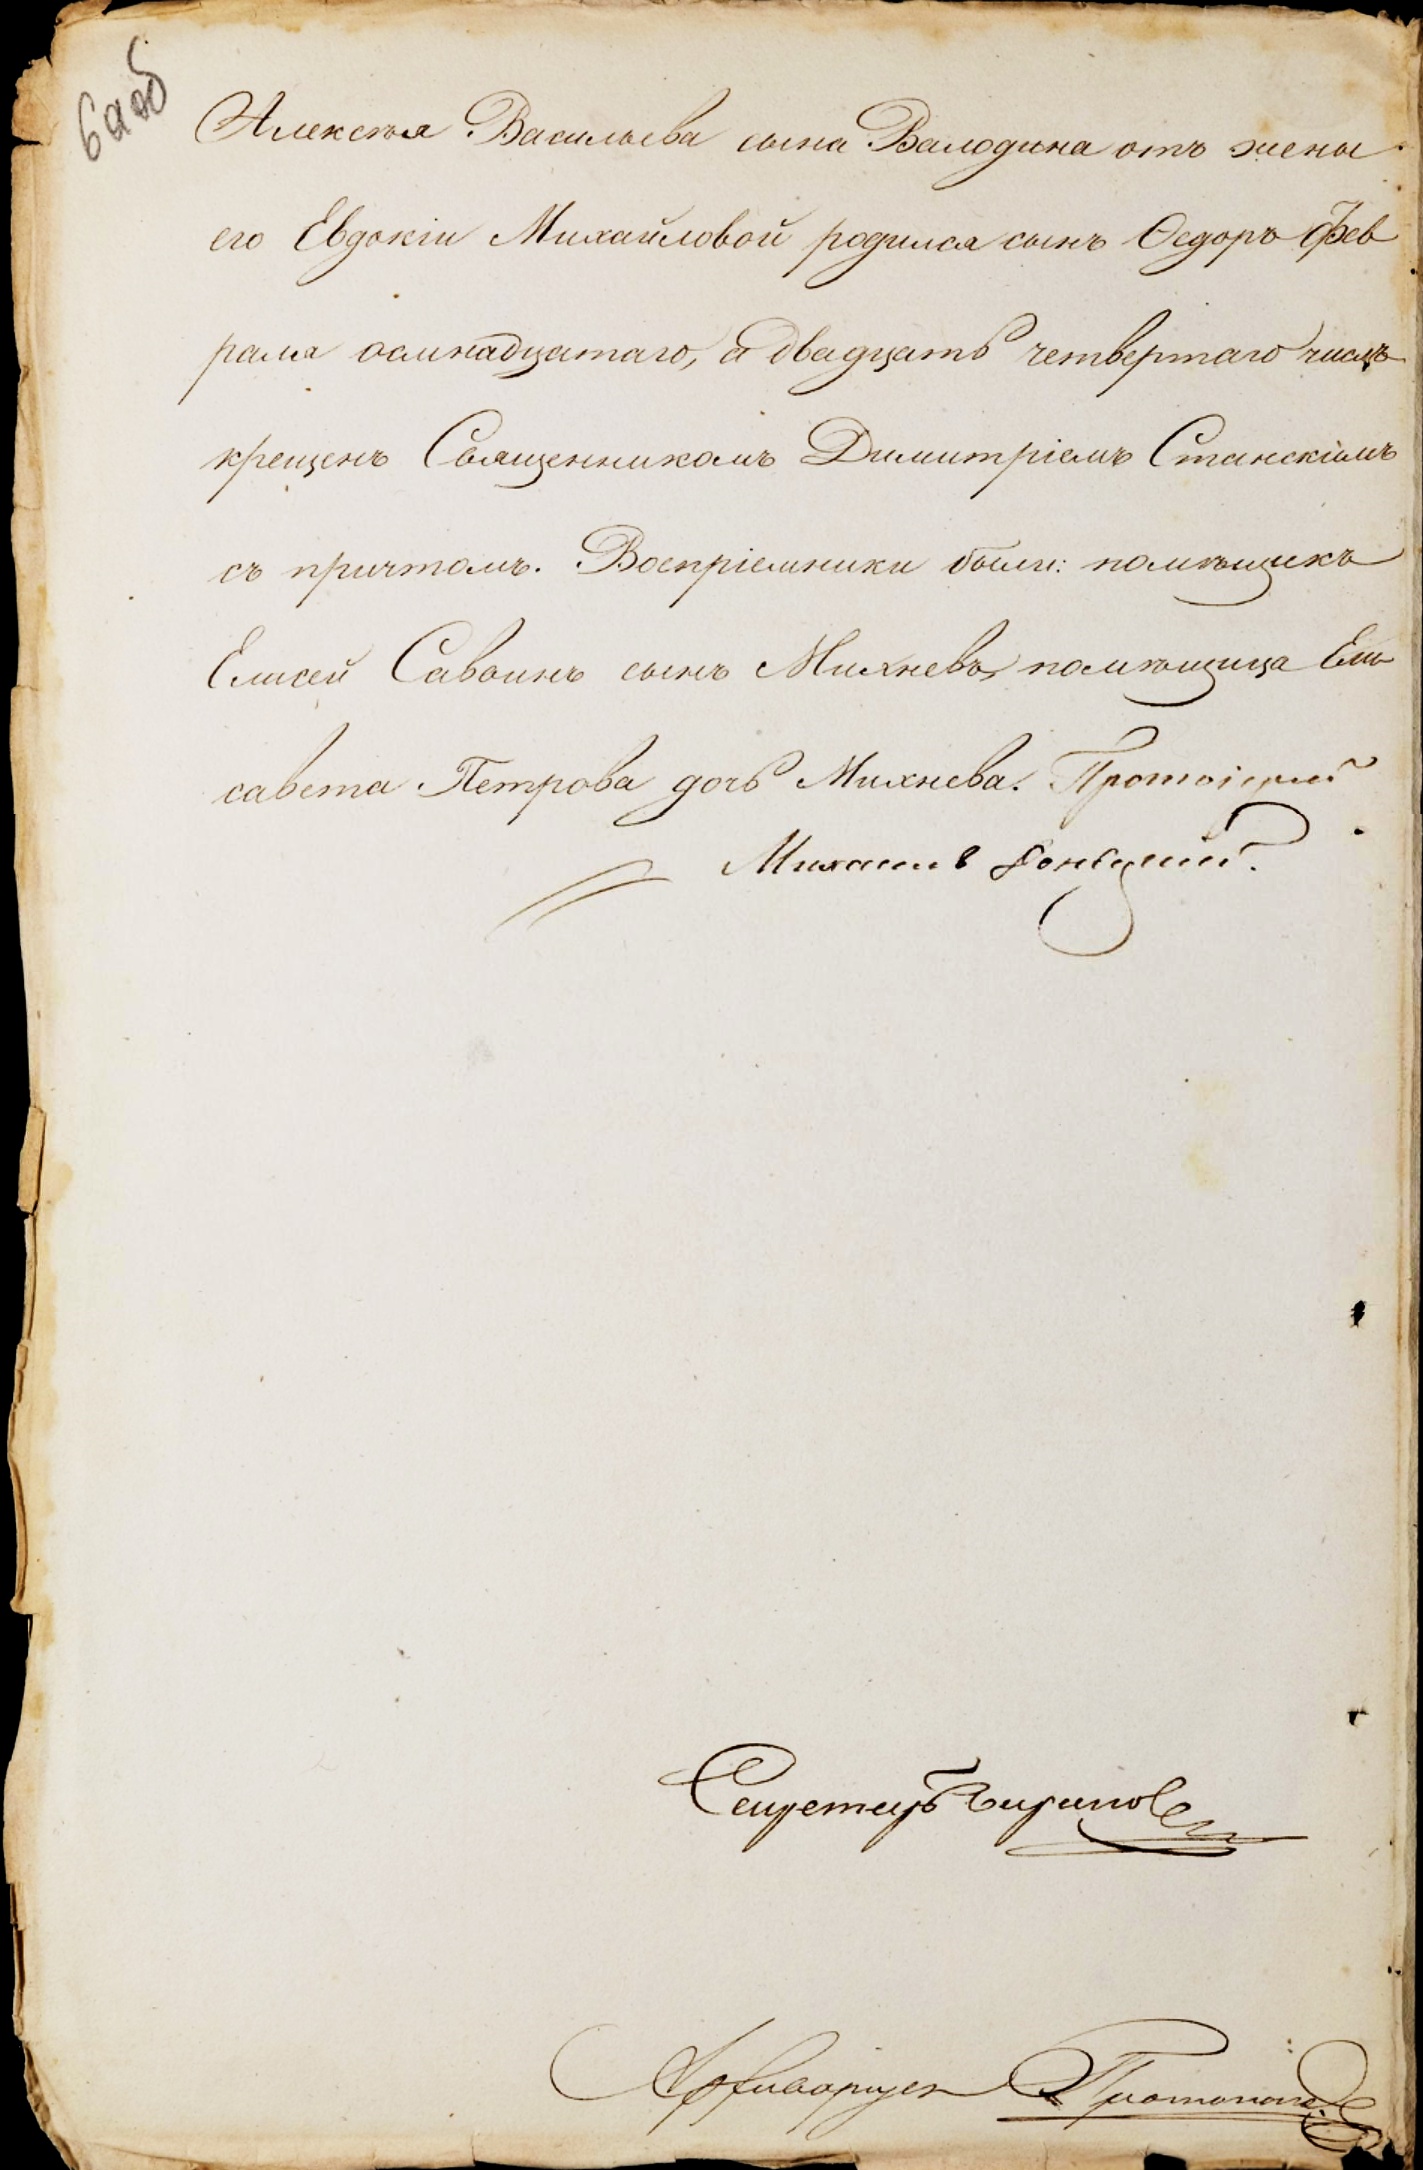 6 об
Алексѣя Васильева сына Валодина отъ жены
его Евдокіи Михайловой родился сынъ Ѳедоръ Фев
раля осмнадцатаго, а двадцать четвертаго числъ
крещенъ Священникомъ Димитріемъ Станскімъ
съ причтомъ. Воспріемники были: помѣщикъ
Елисей Савоинъ сынъ Михневъ, помѣщица Ели
савета Петрова дочь Михнева. Протоіерей
Михаилъ
Секретарь
Архиваріусъ Протопоповъ